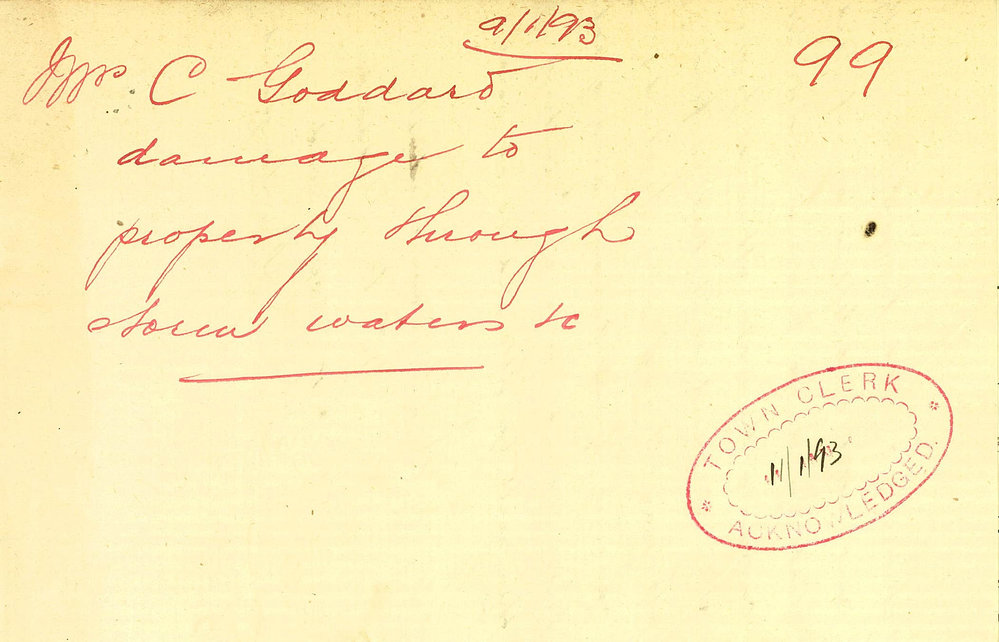 9/1/93
99
Mrs C Goddard
damage to
property through
storm waters &c
TOWN CLERK
11/1/93
ACKNOWLEDGED.